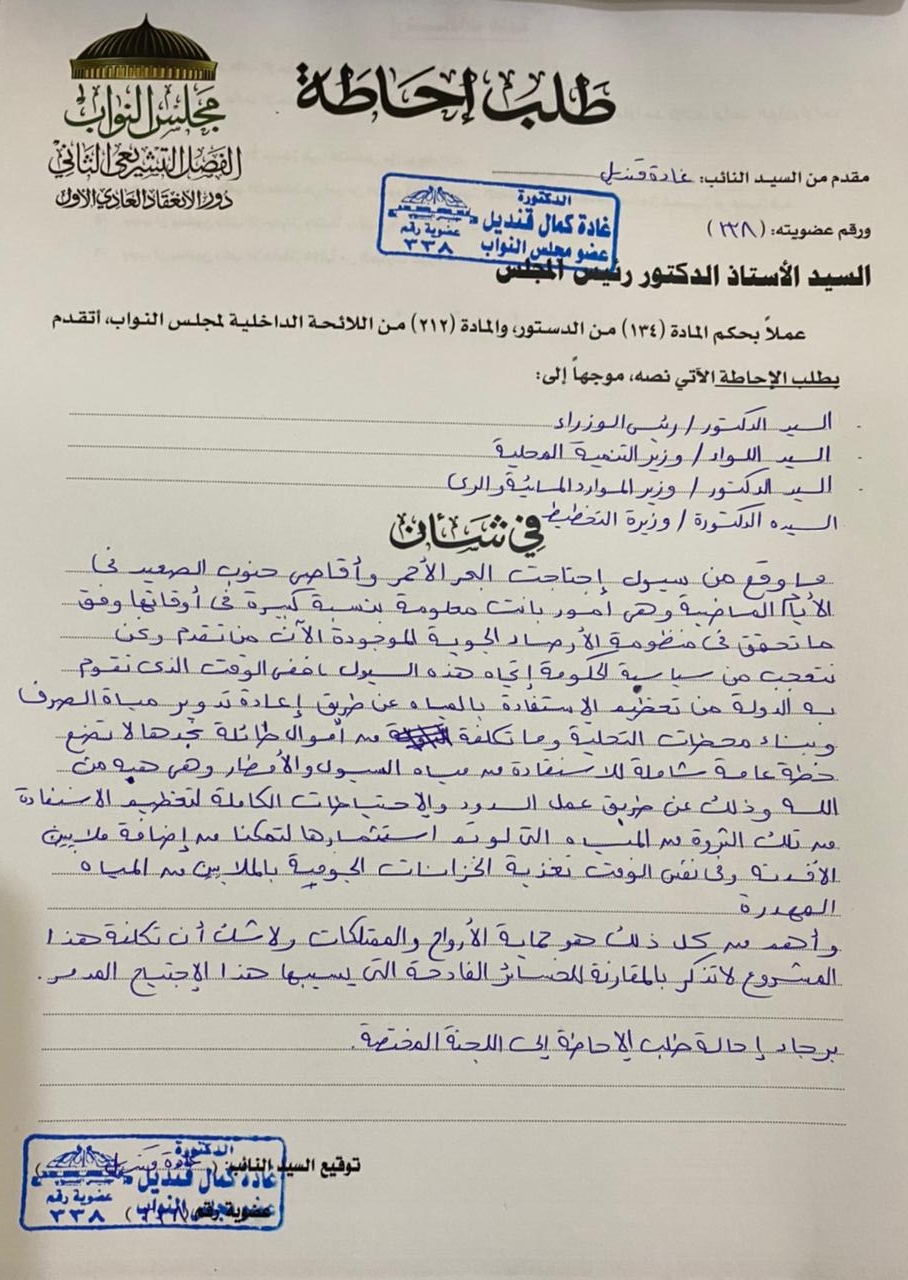 مجلس النواب
الفصل التشريعى الثانى
دور الانعقاد العادى الأول
طلب إحاطة
مقدم من السيد النائب: غادة قنديل
ورقم عضويته: (٣٣٨)
الدكتورة
غادة كمال قنديل
عضو مجلس النواب
عضوية رقم
٣٣٨
السيد الأستاذ الدكتور رئيس المجلس
عملاً بحكم المادة (١٣٤) من الدستور، والمادة (٢١٢) من اللائحة الداخلية لمجلس النواب، أتقدم
بطلب الإحاطة الآتي نصه، موجهاً إلى:
السيد الدكتور / رئيس الوزراء
السيد اللواء / وزير التنمية المحلية
السيد الدكتور / وزير الموارد المائية والرى
السيده الدكتورة / وزيرة التخطيط
في شأن
ما وقع من سيول إجتاحت البحر الأحمر وأقاصى جنوب الصعيد فى
الأيام الماضية وهى أمور باتت معلومة بنسبة كبيرة فى أوقاتها وفق
ما تحقق فى منظومة الأرصاد الجوية الموجودة الآن من تقدم ونحن
نتعجب من سياسية الحكومة إتجاه هذه السيول ففى الوقت الذى تقوم
به الدولة من تعظيم الاستفادة بالمياه عن طريق إعادة تدوير مياة الصرف
وبناء محطات التحلية وما تكلفة من أموال طائلة نجدها لا تضع
خطة عامة شاملة للاستفادة من مياه السيول والأمطار وهى هبه من
الله وذلك عن طريق عمل السدود والإحتياطات الكاملة لتعظيم الاستفادة
من تلك الثروة من المياه التى لو تم استثمارها لتمكنا من إضافة ملايين
الأفدنه وفى نفس الوقت تغذية الخزانات الجوفية بالملايين من المياه
المهدرة
وأهم من كل ذلك هو حماية الأرواح والممتلكات ولا شك أن تكلفة هذا
المشروع لا تذكر بالمقارنة للخسائر الفادحة التى يسببها هذا الإجتياح المدمر.
برجاء إحالة طلب الإحاطة إلى اللجنة المختصة.
توقيع السيد النائب: (غادة قنديل)
عضوية رقم (٣٣٨)
الدكتورة
غادة كمال قنديل
عضو مجلس النواب
عضوية رقم
٣٣٨